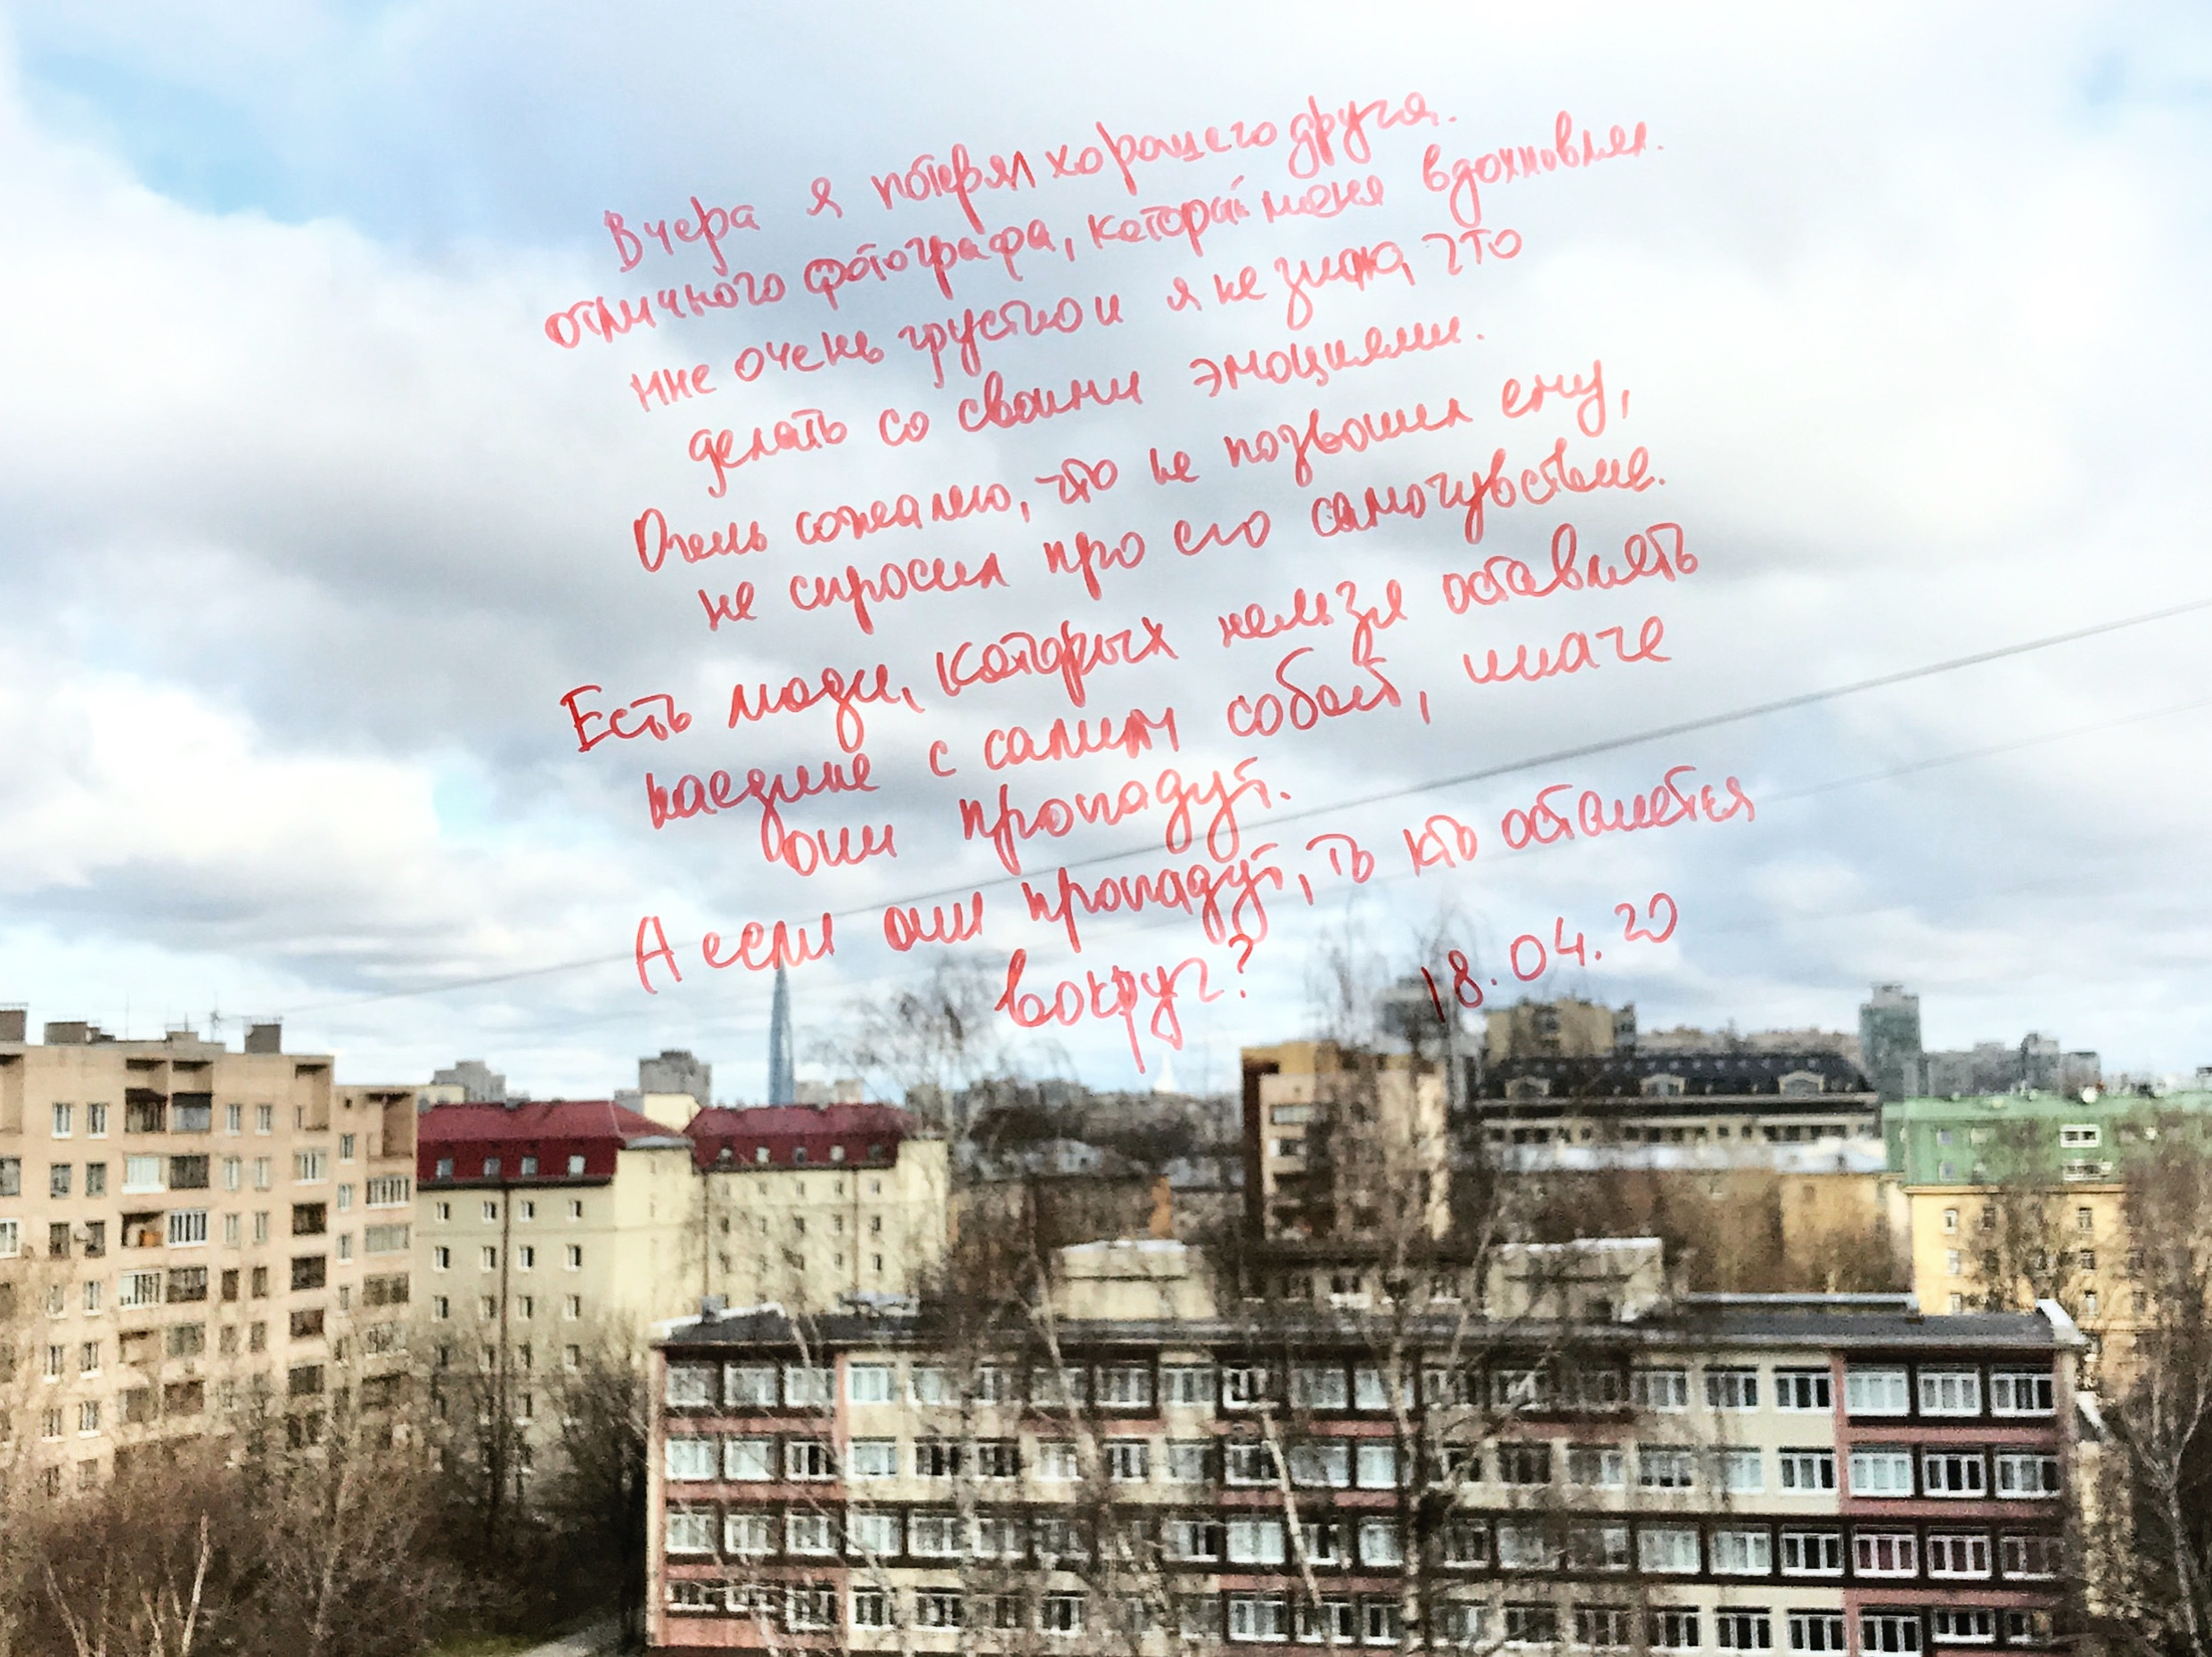 Вчера я потерял хорошего друга.
отличного фотографа, который меня вдохновлял.
мне очень грустно и я не знаю, что
делать со своими эмоциями.
Очень сожалею, что не позвонил ему,
не спросил про его самочувствие.
Есть люди, которых нельзя оставлять
наедине с самим собой, иначе
они пропадут.
А если они пропадут, то кто останется
вокруг?
18.04.20